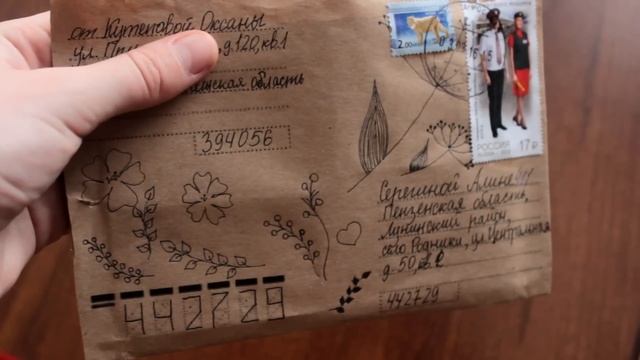 от Кутеповой Оксаны
ул. д.120, кв.1
область
394056
2.00
РОССИЯ
17 ₽
Серегиной Алине
Пензенская область,
Лунинский район,
село Родники, ул. Центральная
д-50, кв.2
442729
442729